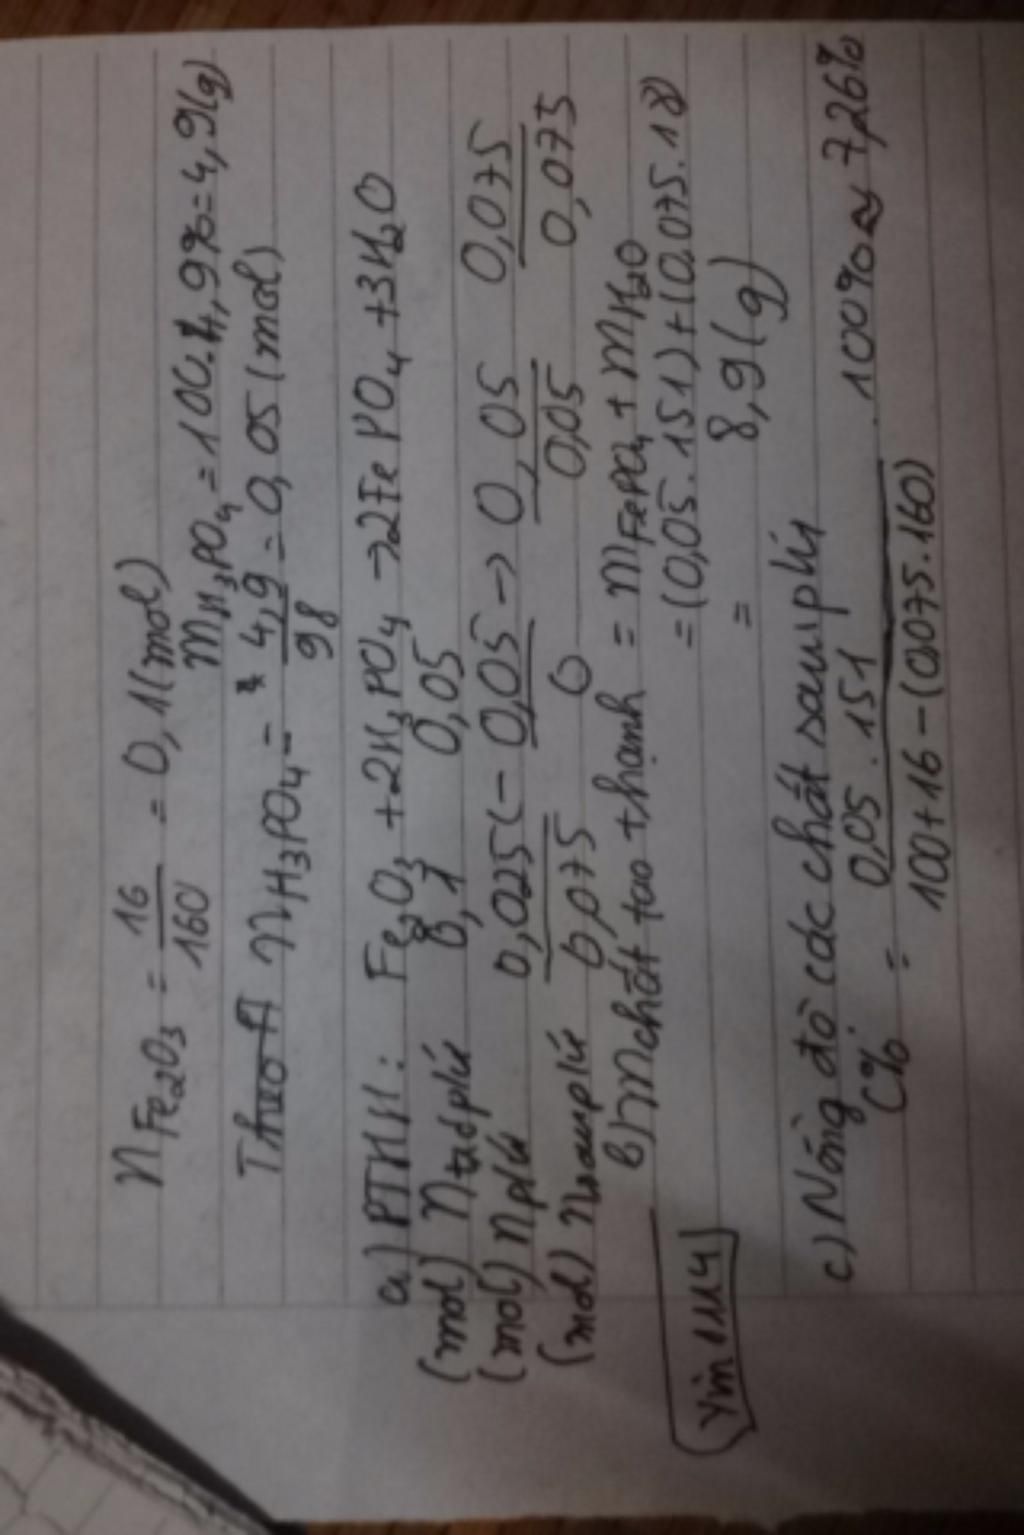 nFe₂O₃ = 16/160 = 0,1(mol)
mH₃PO₄ = 100.4,9% = 4,9(g)
nH₃PO₄ = 4,9/98 = 0,05(mol)
a) PTHH: Fe₂O₃ + 2H₃PO₄ → 2FePO₄ + 3H₂O
(mol) ntdpứ 0,1 0,05
(mol) npứ 0,025 <- 0,05 -> 0,05 0,075
(mol) nsaupứ 0,075 0 0,05 0,075
b) mchất tạo thành = mFePO₄ + mH₂O
= (0,05.151) + (0,075.18)
= 8,9(g)
yim1114
c) Nông độ các chất sau pứ
C% = 0,05.151/100+16-(0,075.160) . 100% ≈ 7,26%